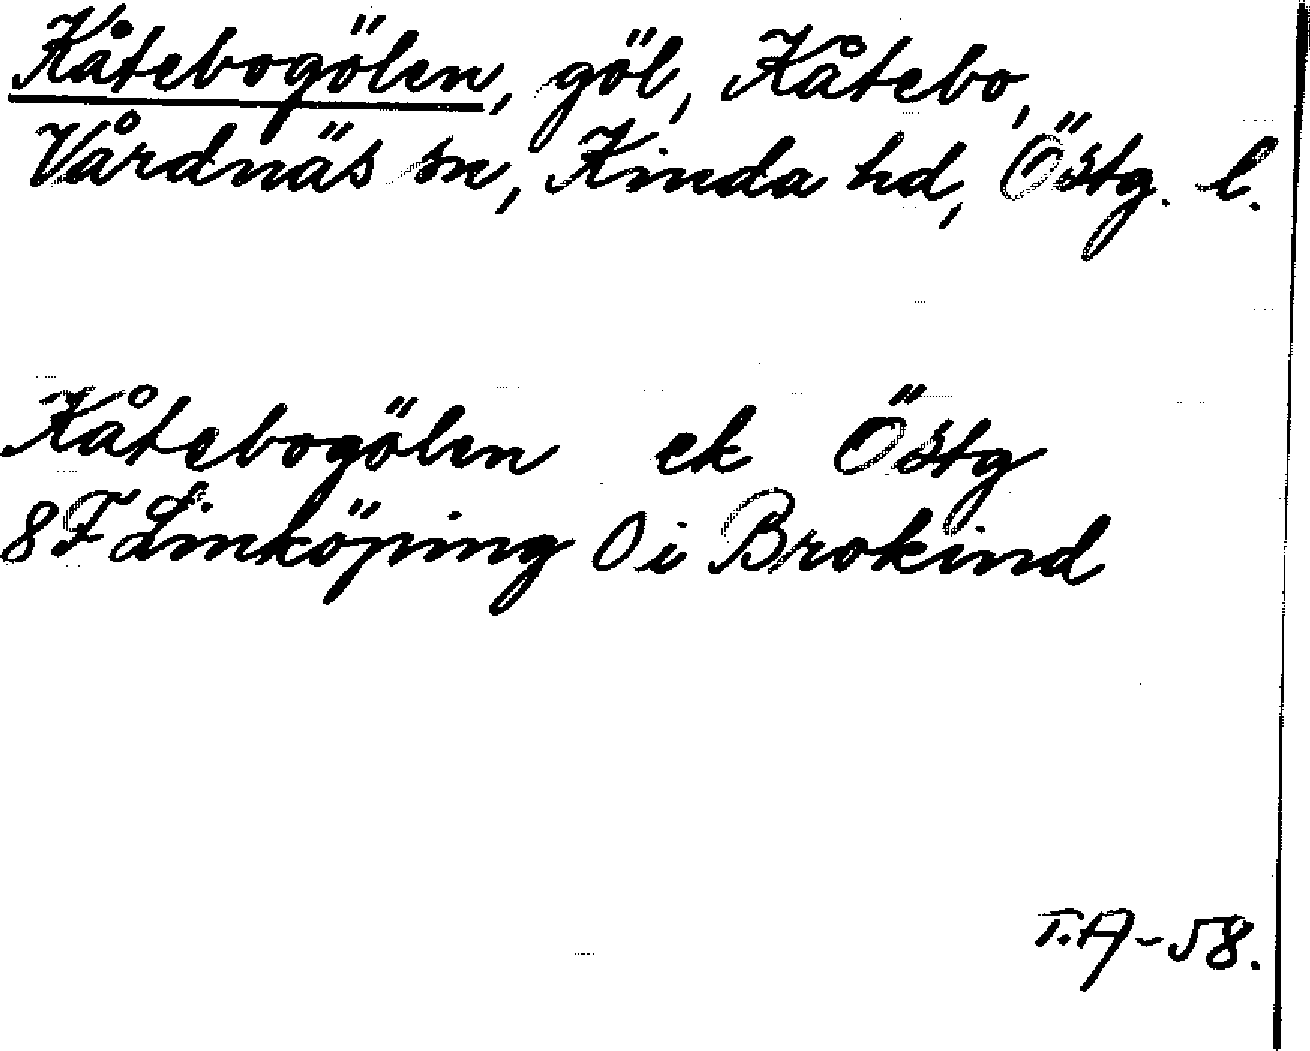 Kåtebogölen, göl, Kåtebo,
Vårdnäs sn, Kinda hd, Östg. l.
Kåtebogölen ek Östg
8F Linköping O i Brokind
T.A-58.